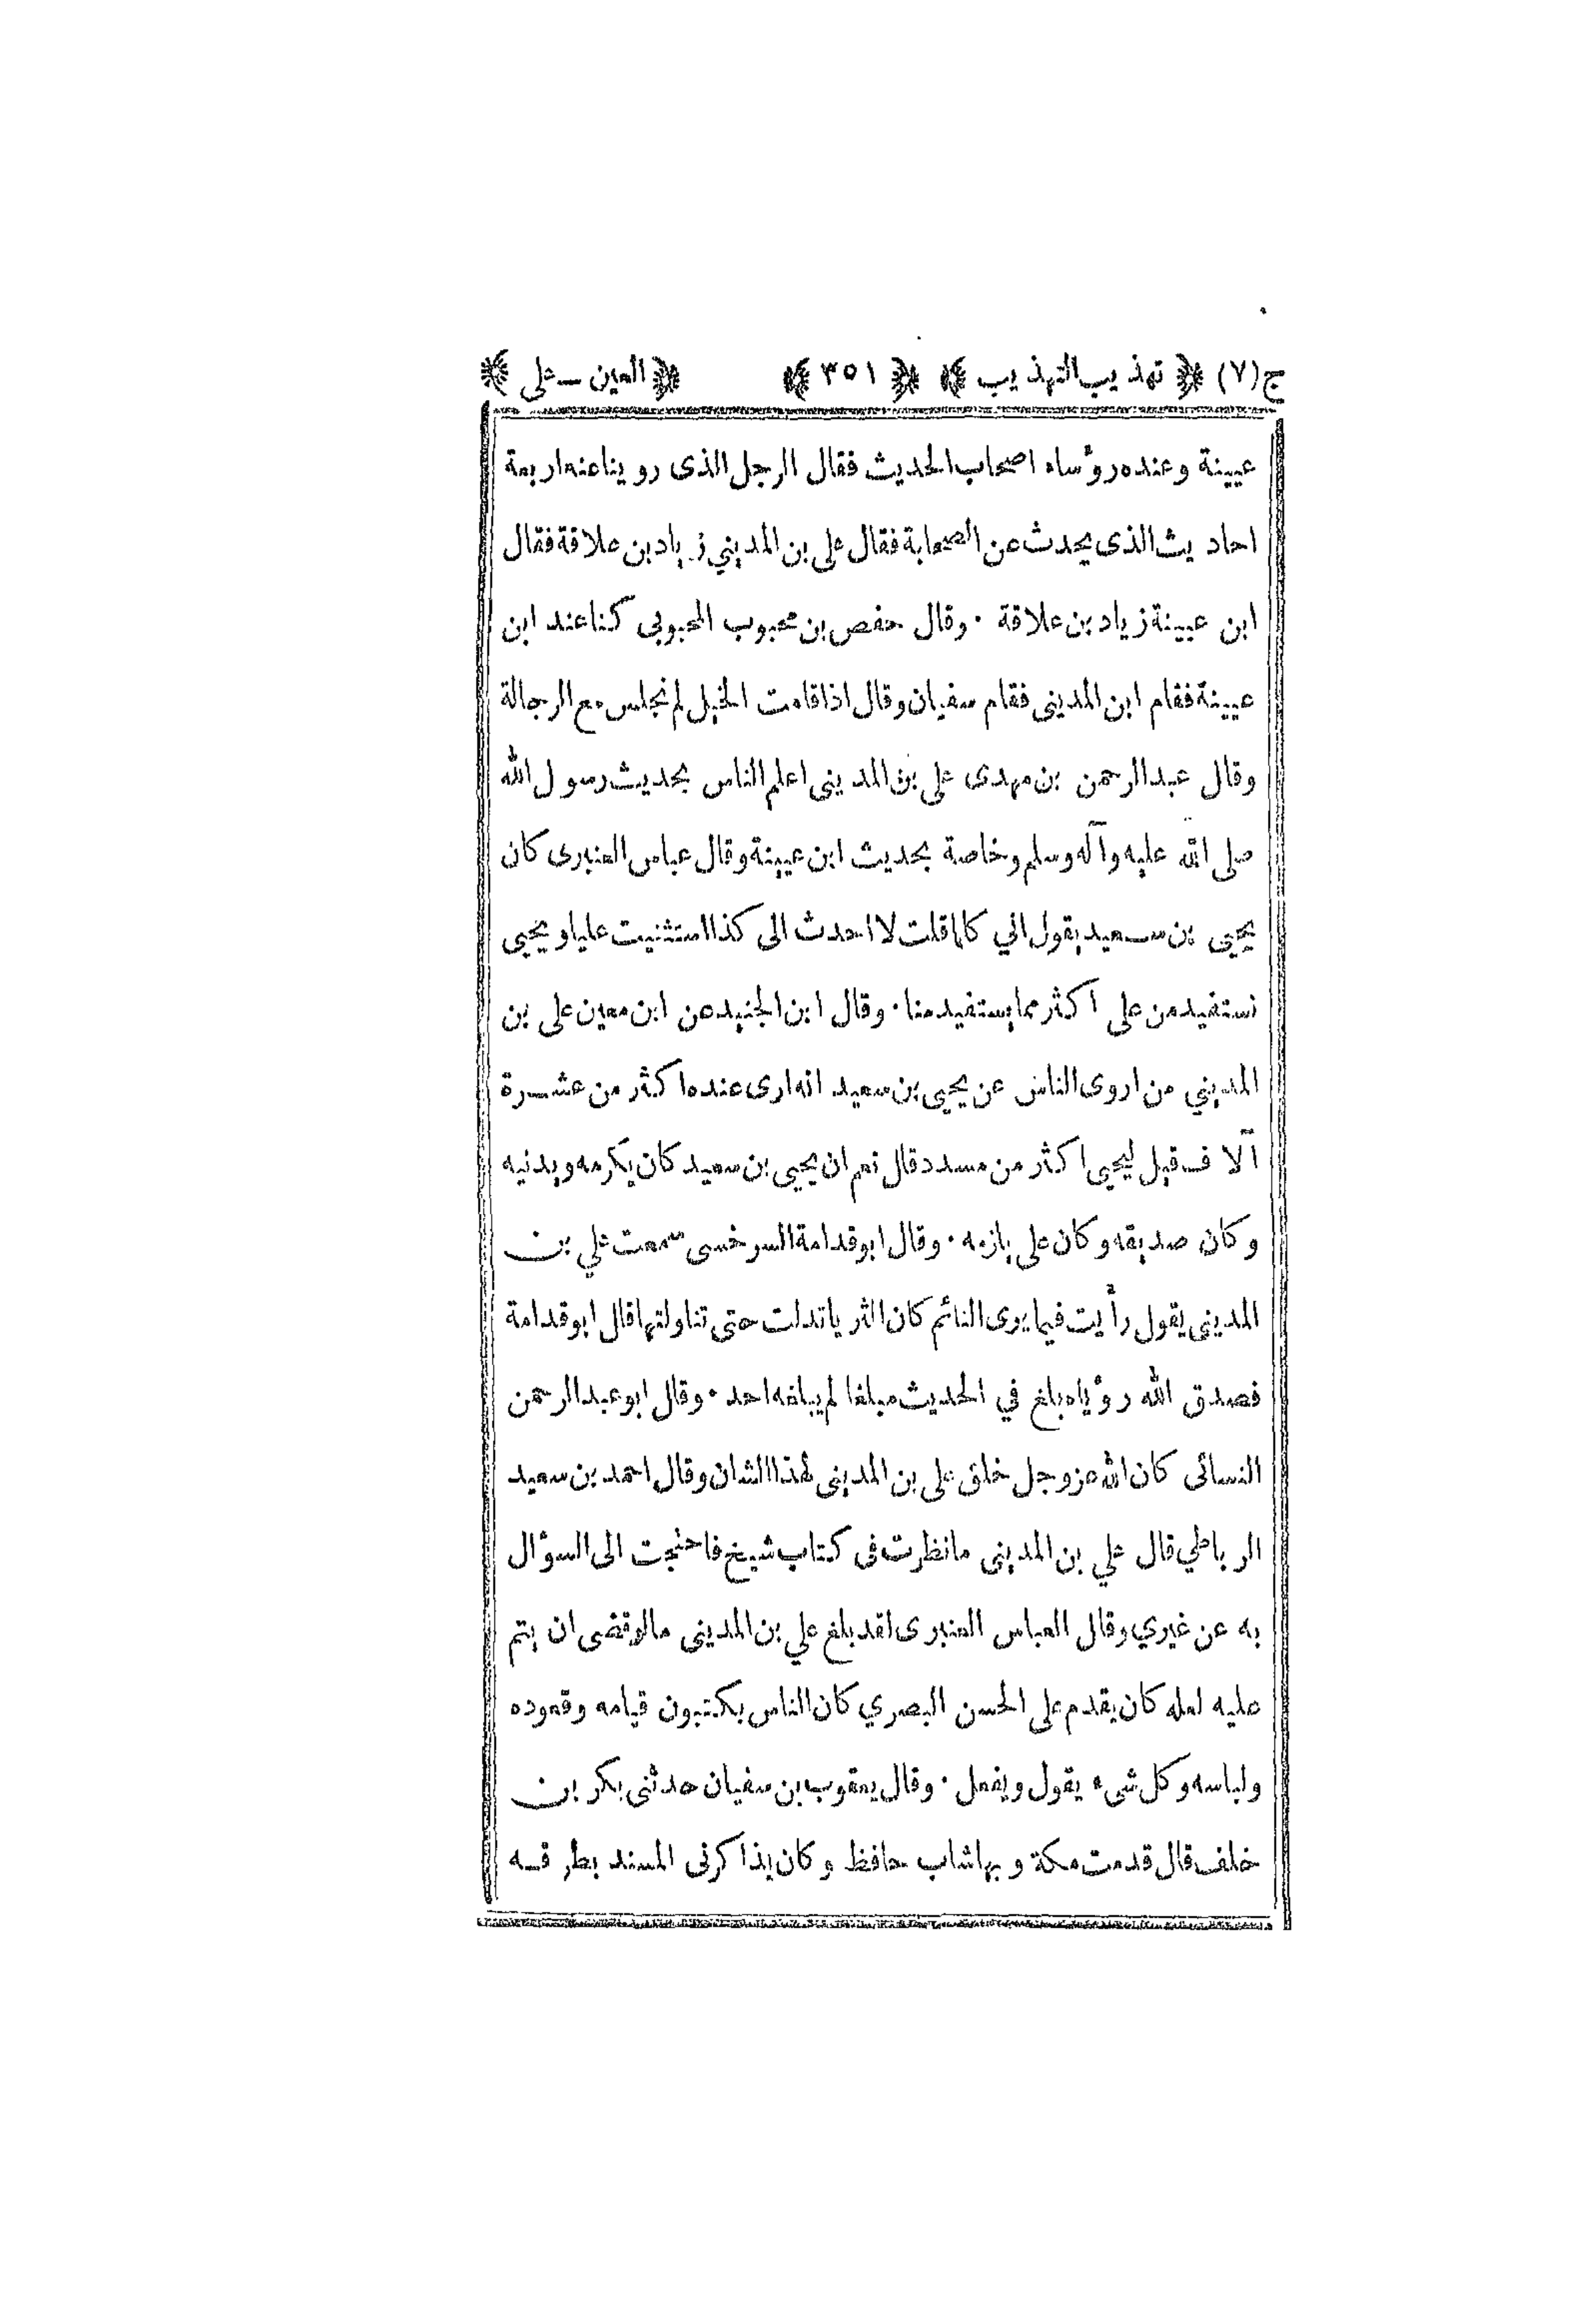 ج(٧) ﴿ تهذيب التهذيب ﴾ ﴿ ٣٥١ ﴾ ﴿ العين ـ على ﴾
عيينة وعنده رؤساء اصحاب الحديث فقال الرجل الذى روينا عنه اربعة
احاديث الذى يحدث عن الصحابة فقال على بن المديني زياد بن علاقة فقال
ابن عيينة زياد بن علاقة · وقال حفص بن محبوب المحبوبى كنا عند ابن
عيينة فقام ابن المديني فقام سفيان وقال اذا قامت الخيل لم نجلس مع الرجالة
وقال عبد الرحمن بن مهدى على بن المديني اعلم الناس بحديث رسول الله
صلى الله عليه وآله وسلم وخاصة بحديث ابن عيينة وقال عباس العنبرى كان
يحيى بن سعيد يقول اني كلما قلت لا احدث الى كذا استثنيت عليا ويحيى
نستفيد من على اكثر مما يستفيد منا · وقال ابن الجنيد عن ابن معين على بن
المديني من اروى الناس عن يحيى بن سعيد انه ارى عنده اكثر من عشرة
آلاف قيل ليحيى اكثر من مسدد قال نعم ان يحيى بن سعيد كان يكرمه ويدنيه
وكان صديقه وكان على يلزمه · وقال ابو قدامة السرخسى سمعت علي بن
المديني يقول رأيت فيما يرى النائم كان الثريا تدلت حتى تناولتها قال ابو قدامة
فصدق الله رؤياه بلغ في الحديث مبلغا لم يبلغه احد · وقال ابو عبد الرحمن
النسائى كان الله عز وجل خلق على بن المديني لهذا الشان وقال احمد بن سعيد
الرباطي قال علي بن المديني ما نظرت فى كتاب شيخ فاحتجت الى السؤال
به عن غيري وقال العباس العنبرى لقد بلغ علي بن المديني مالو قضى ان يتم
عليه لعله كان يقدم على الحسن البصري كان الناس يكتبون قيامه وقعوده
ولباسه وكل شىء يقول ويفعل · وقال يعقوب بن سفيان حدثنى بكر بن
خلف قال قدمت مكة وبها شاب حافظ وكان يذاكرنى المسند بطرقه